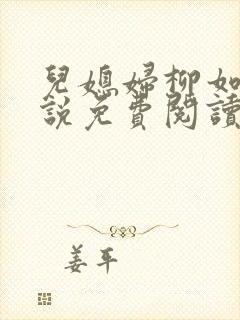 兒媳婦柳如
說免費閱讀
姜平